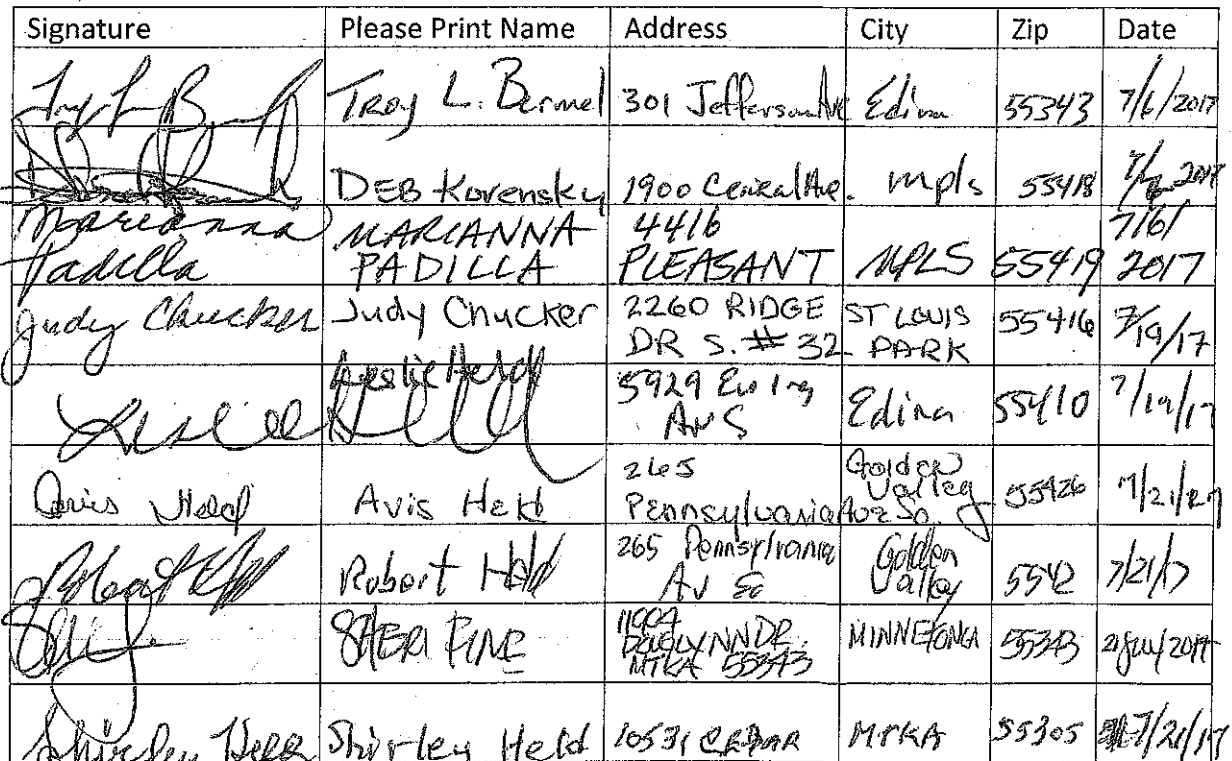 Signature Please Print Name Address City Zip Date
Troy L. Bermel 301 Jefferson Ave Edina 55343 7/6/2017
DEB Korensky 1900 Central Ave. mpls 55418 2017
Marianna Padilla MARIANNA PADILLA 4416 PLEASANT MPLS 55419 7/6/ 2017
Judy Chucker Judy Chucker 2260 RIDGE DR S. # 32 ST LOUIS PARK 55416 7/19/17
Leslie Held Leslie Held 5929 Ewing Av S Edina 55410 7/19/17
Avis Held Avis Held 265 Pennsylvania Ave So. Golden Valley 55426 7/21/17
Robert Held Robert Held 265 Pennsylvania Av So Golden Valley 5542 7/21/17
SHERI FINE 11904 DR. MTKA 55343 MINNETONKA 55343 21 July 2017
Shirley Held Shirley Held 10531 CEDAR MTKA 55305 7/21/17